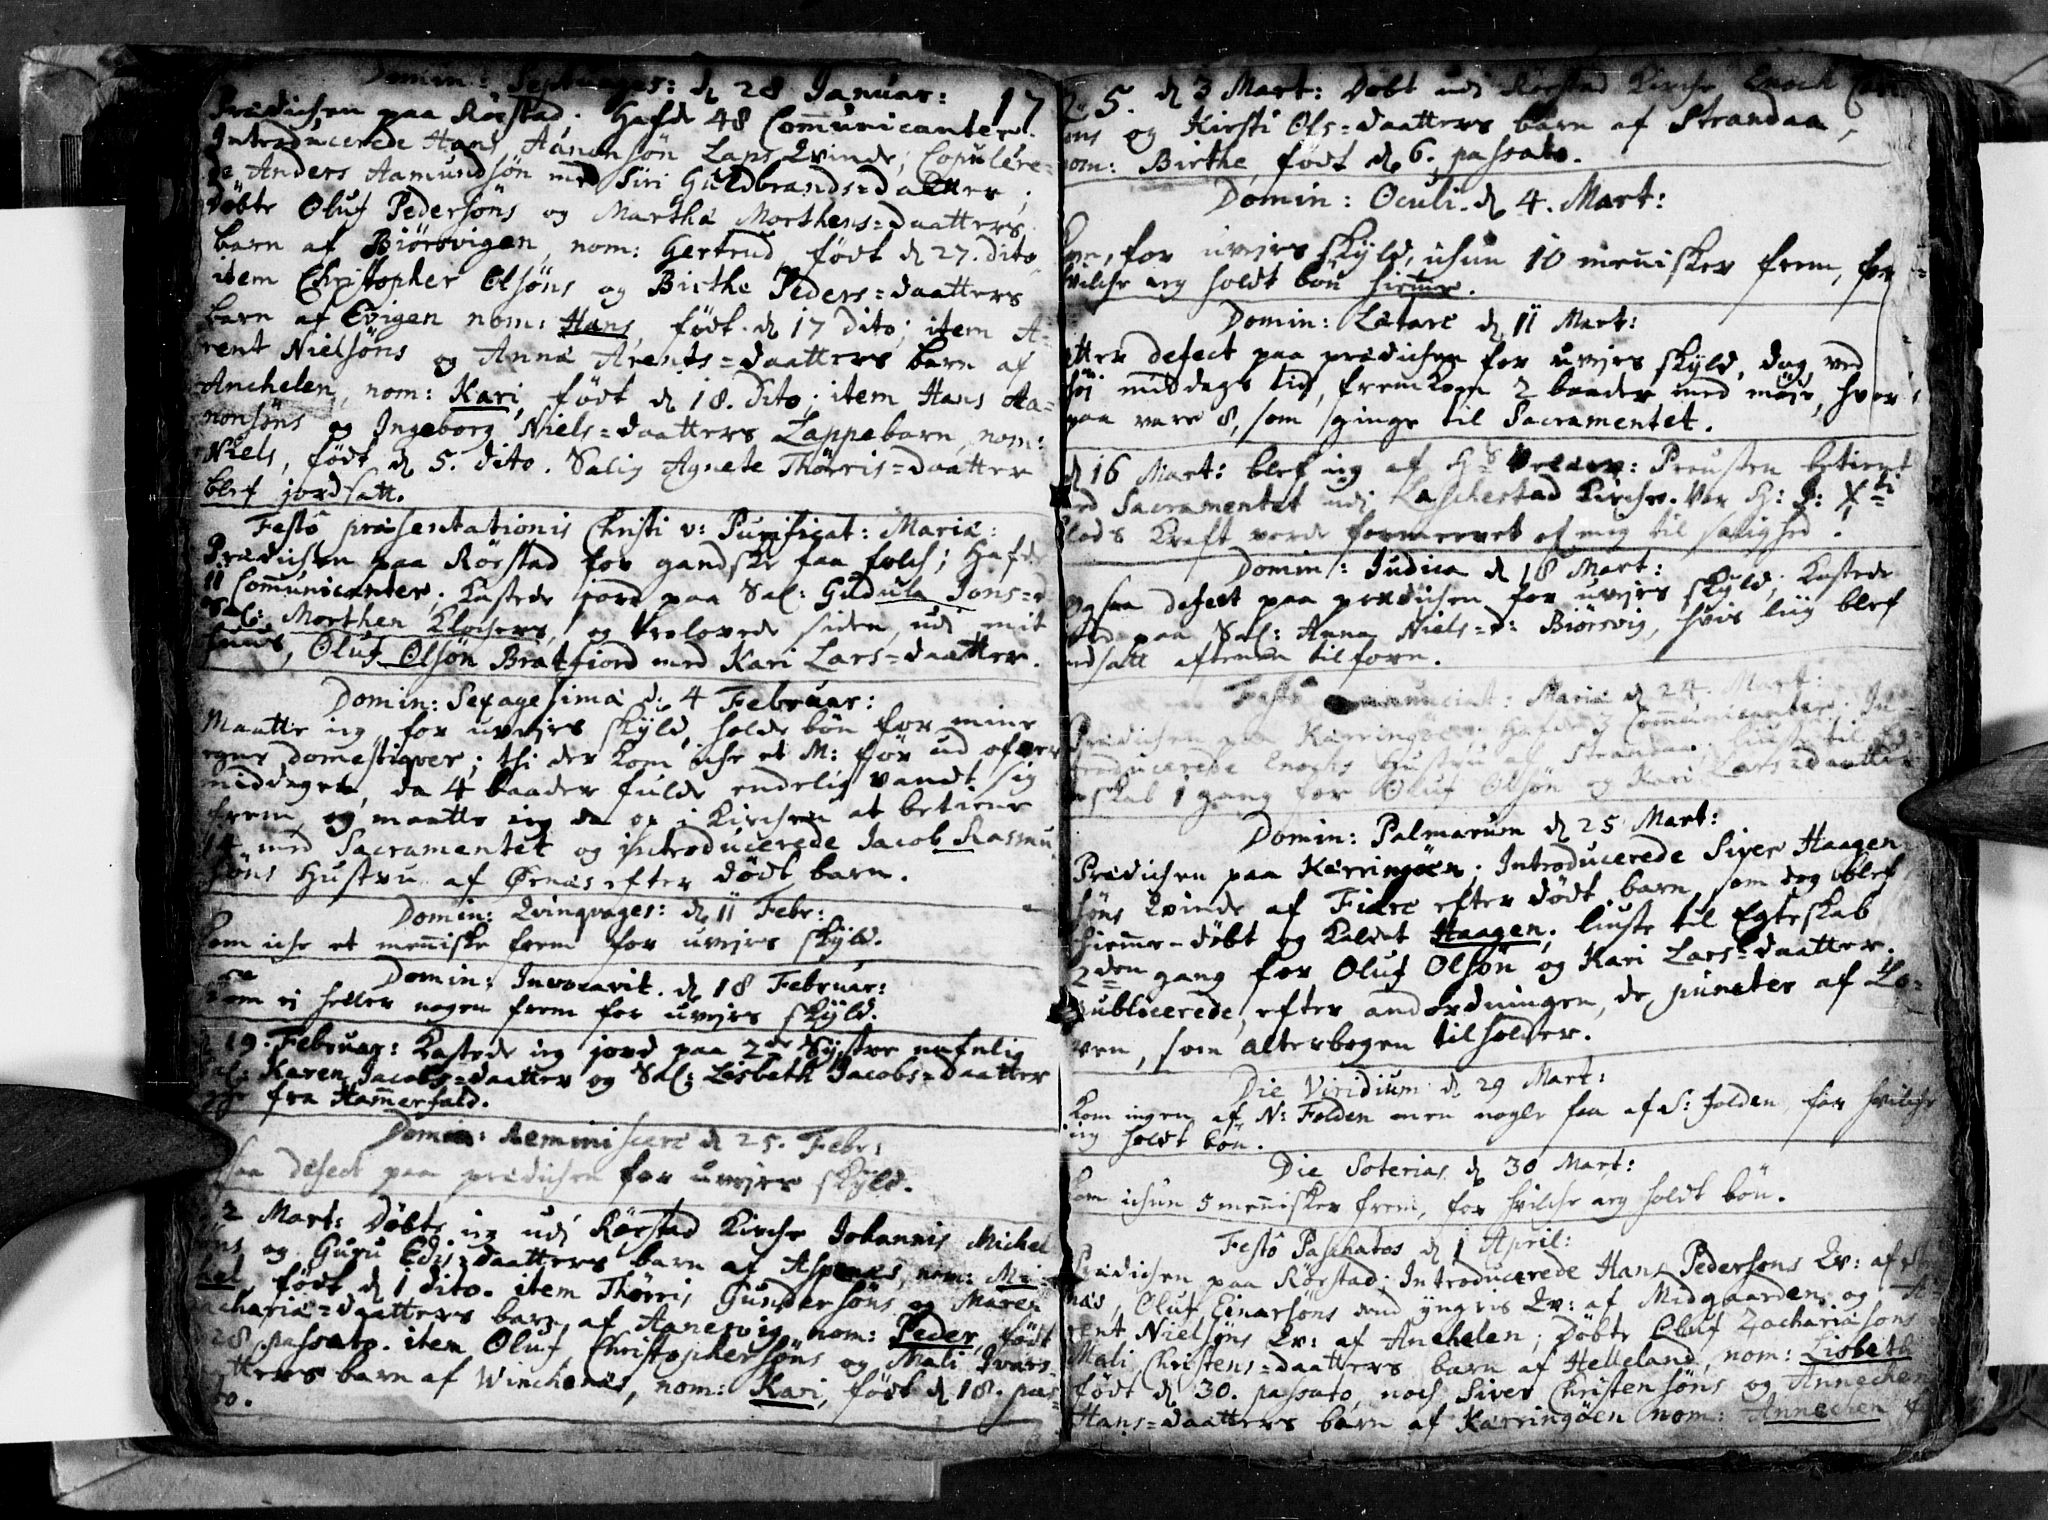 Domin: Septuages: d 28 Januar: 17
Prædichen paa Rørstad. Hafde 48 Com̄unicanter.
Introducerede Hans Aanonsøn Laps Qvinde; Copulere-
de Anders Aamundsøn med Siri Guldbrands=Datter;
Døbte Oluf Pedersøns og Martha Morthens=daatters
barn af Biørsvigen, nom: Gertrud, født d 27. dito,
item Christopher Olsøns og Birthe Peders=daatters
barn af Evigen nom: Hans, født d 17 dito; item A-
rent Nielsøns og Anna Arents=daatters barn af
Anchelen, nom: Kari, født d 18. dito; item Hans Aa=
nonsøns og Ingeborg Niels=daatters Lappebarn, nom:
Niels, født d 5. dito. Salig Agnete Thørris=daatter
blef jordsatt.
Festo præsentationis Christi v: Purificat: Mariæ:
Prædichen paa Rørstad for gandske faa folch; Hafde
11 Com̄unicanter. Kastede jord paa Sal: Gudula Jons=d
Sal: Morthen Klochers, og trolovede siden, udi mit
huus, Oluf Olsøn Bratfiord med Kari Lars=daatter.
Domin: Sexagesima d. 4 Februar:
Maatte ieg for uvejrs skyld, holde bøn for mine
egne domestiqver; thi der kom iche et M: før ud ofver
middagen, da 4 baader fulde endelig vandt sig
frem, og maatte ieg da op i Kirchen at betiene
14 med Sacramentet og introducerede Jacob Rasmu
søns Hustru af Ørnæs efter dødt barn.
Domin: Qvinqvages: d 11 Febr:
Kom iche et men̄iske frem for uvejrs skyld.
Domin: Invocavit. d 18 Februar:
Kom ei heller nogen frem for uvejrs skyld.
d 19. Februar: Kastede ieg jord paa 2de Systre nafnlig
Sal: Karen Jacobs=daatter og Sal: Lisbeth Jacobs=daatter
fra Ham̄erfald.
Domin: Reminiscere d 25. Febr:
saa defect paa prædichen for uvejrs skyld.
2 Mart: Døbte ieg udi Rørstad Kirche Johannis Michel
søns og Guru Edis=daatters barn af Aspenes, nom: Mi-
chel, født d 1 dito. item Thørris Gundersøns og Maren
Zachariæ=daatters barn af Aanesvig nom: Peder, født
28. passato. item Oluf Christophersøns og Mali Ivars
daatters barn af Winchenæs, nom: Kari, født d 18. pas=
to.
d 3 Mart: Døbt udi Rørstad Kirche Enoch
søns og Kirsti Ols=daatters barn af Strandaa,
nom: Birthe, født d 6. passato.
Domin: Oculi. d 4. Mart:
Kom, for uvejrs skyld, ichun 10 menisker frem, for
hvilche ieg holdt bøn hiem̄e.
Domin: Lætare d 11 Mart:
Atter defect paa prædichen for uvejrs skyld, dog, ved
høj middags tid, fremkom 2 baader med møje, hvor
paa vare 8, som ginge til Sacramentet.
d 16 Mart: blef ieg af Provsten betient
med Sacramentet udi Laschestad Kirche. Vor H: J: Xti
blods Kraft vorde formeeret af mig til salighed.
Domin: Judica d 18 Mart:
Ogsaa defect paa prædichen for uvejrs skyld; Kastede
jord paa Sal: Anna Niels=d: Biørsvig, hvis liig blef
indsatt aftenen tilforn.
Festo Annunciat: Mariæ d 24. Mart:
Prædichen paa Kærringøen. Hafde 7 Com̄unicanter. In-
troducerede Enochs Hustru af Strandaa. liuste til Eg-
teskab 1 gang for Oluf Olsøn og Kari Lars=daatter
Domin: Palmarum d 25 Mart:
Prædichen paa Kærringøen. Introducerede Siver Haagen
søns Qvinde af Fiære efter dødt barn, som dog blef
hiem̄e-døbt og kaldet Haagen; liuste til Egteskab
2den gang for Oluf Olsøn og Kari Lars=daatter.
Publicerede, efter anordningen, de puncter af Lo-
ven, som alterbogen tilholder.
Die Viridium d 29 Mart:
Kom ingen af N: Folden men nogle faa af S: Folden, for hvilche
ieg holdt bøn.
Die Soterias d 30 Mart:
Kom ichun 5 men̄isker frem, for hvilche ieg holdt bøn.
Festo Paschatos d 1 April:
Prædichen paa Rørstad; Introducerede Hans Pedersøns Qv: af
næs, Oluf Einarsøns dend yngris Qv: af Midgaarden, og A-
rent Nielsøns Qv: af Anchelen; Døbte Oluf Zachariæsøns
Mali Christens=daatters barn af Helleland, nom: Lisbeth
født d 30. passato, noch Siver Christensøns og Annechen
Hans=daatters barn af Kærringøen nom: Annechen